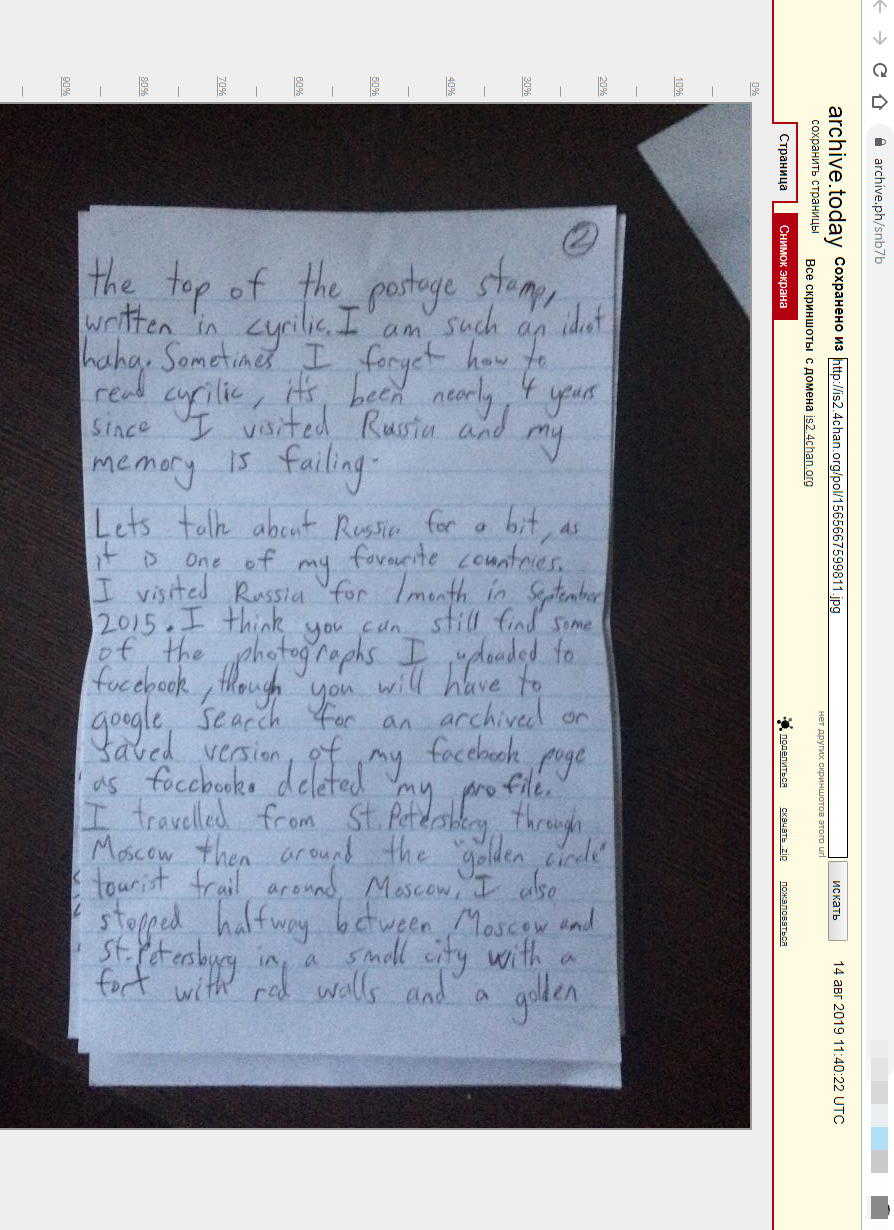 archive.ph/snb7b
archive.today
сохранить страницы
Сохранено из
http://is2.4chan.org/pol/1565667599811.jpg
искать
14 авг 2019 11:40:22 UTC
нет других скриншотов этого url
Все скриншоты
с домена is2.4chan.org
Страница
Снимок экрана
поделиться
скачать .zip
пожаловаться
0%
10%
20%
30%
40%
50%
60%
70%
80%
90%
2
the top of the postage stamp,
written in cyrilic. I am such an idiot
haha. Sometimes I forget how to
read cyrilic, it's been nearly 4 years
since I visited Russia and my
memory is failing.
Lets talk about Russia for a bit, as
it is one of my favourite countries.
I visited Russia for 1month in September
2015. I think you can still find some
of the photographs I uploaded to
facebook, though you will have to
google search for an archived or
saved version of my facebook page
as facebook deleted my profile.
I travelled from St.Petersberg through
Moscow then around the "golden circle"
tourist trail around Moscow, I also
stopped halfway between Moscow and
St.Petersburg in a small city with a
fort with red walls and a golden